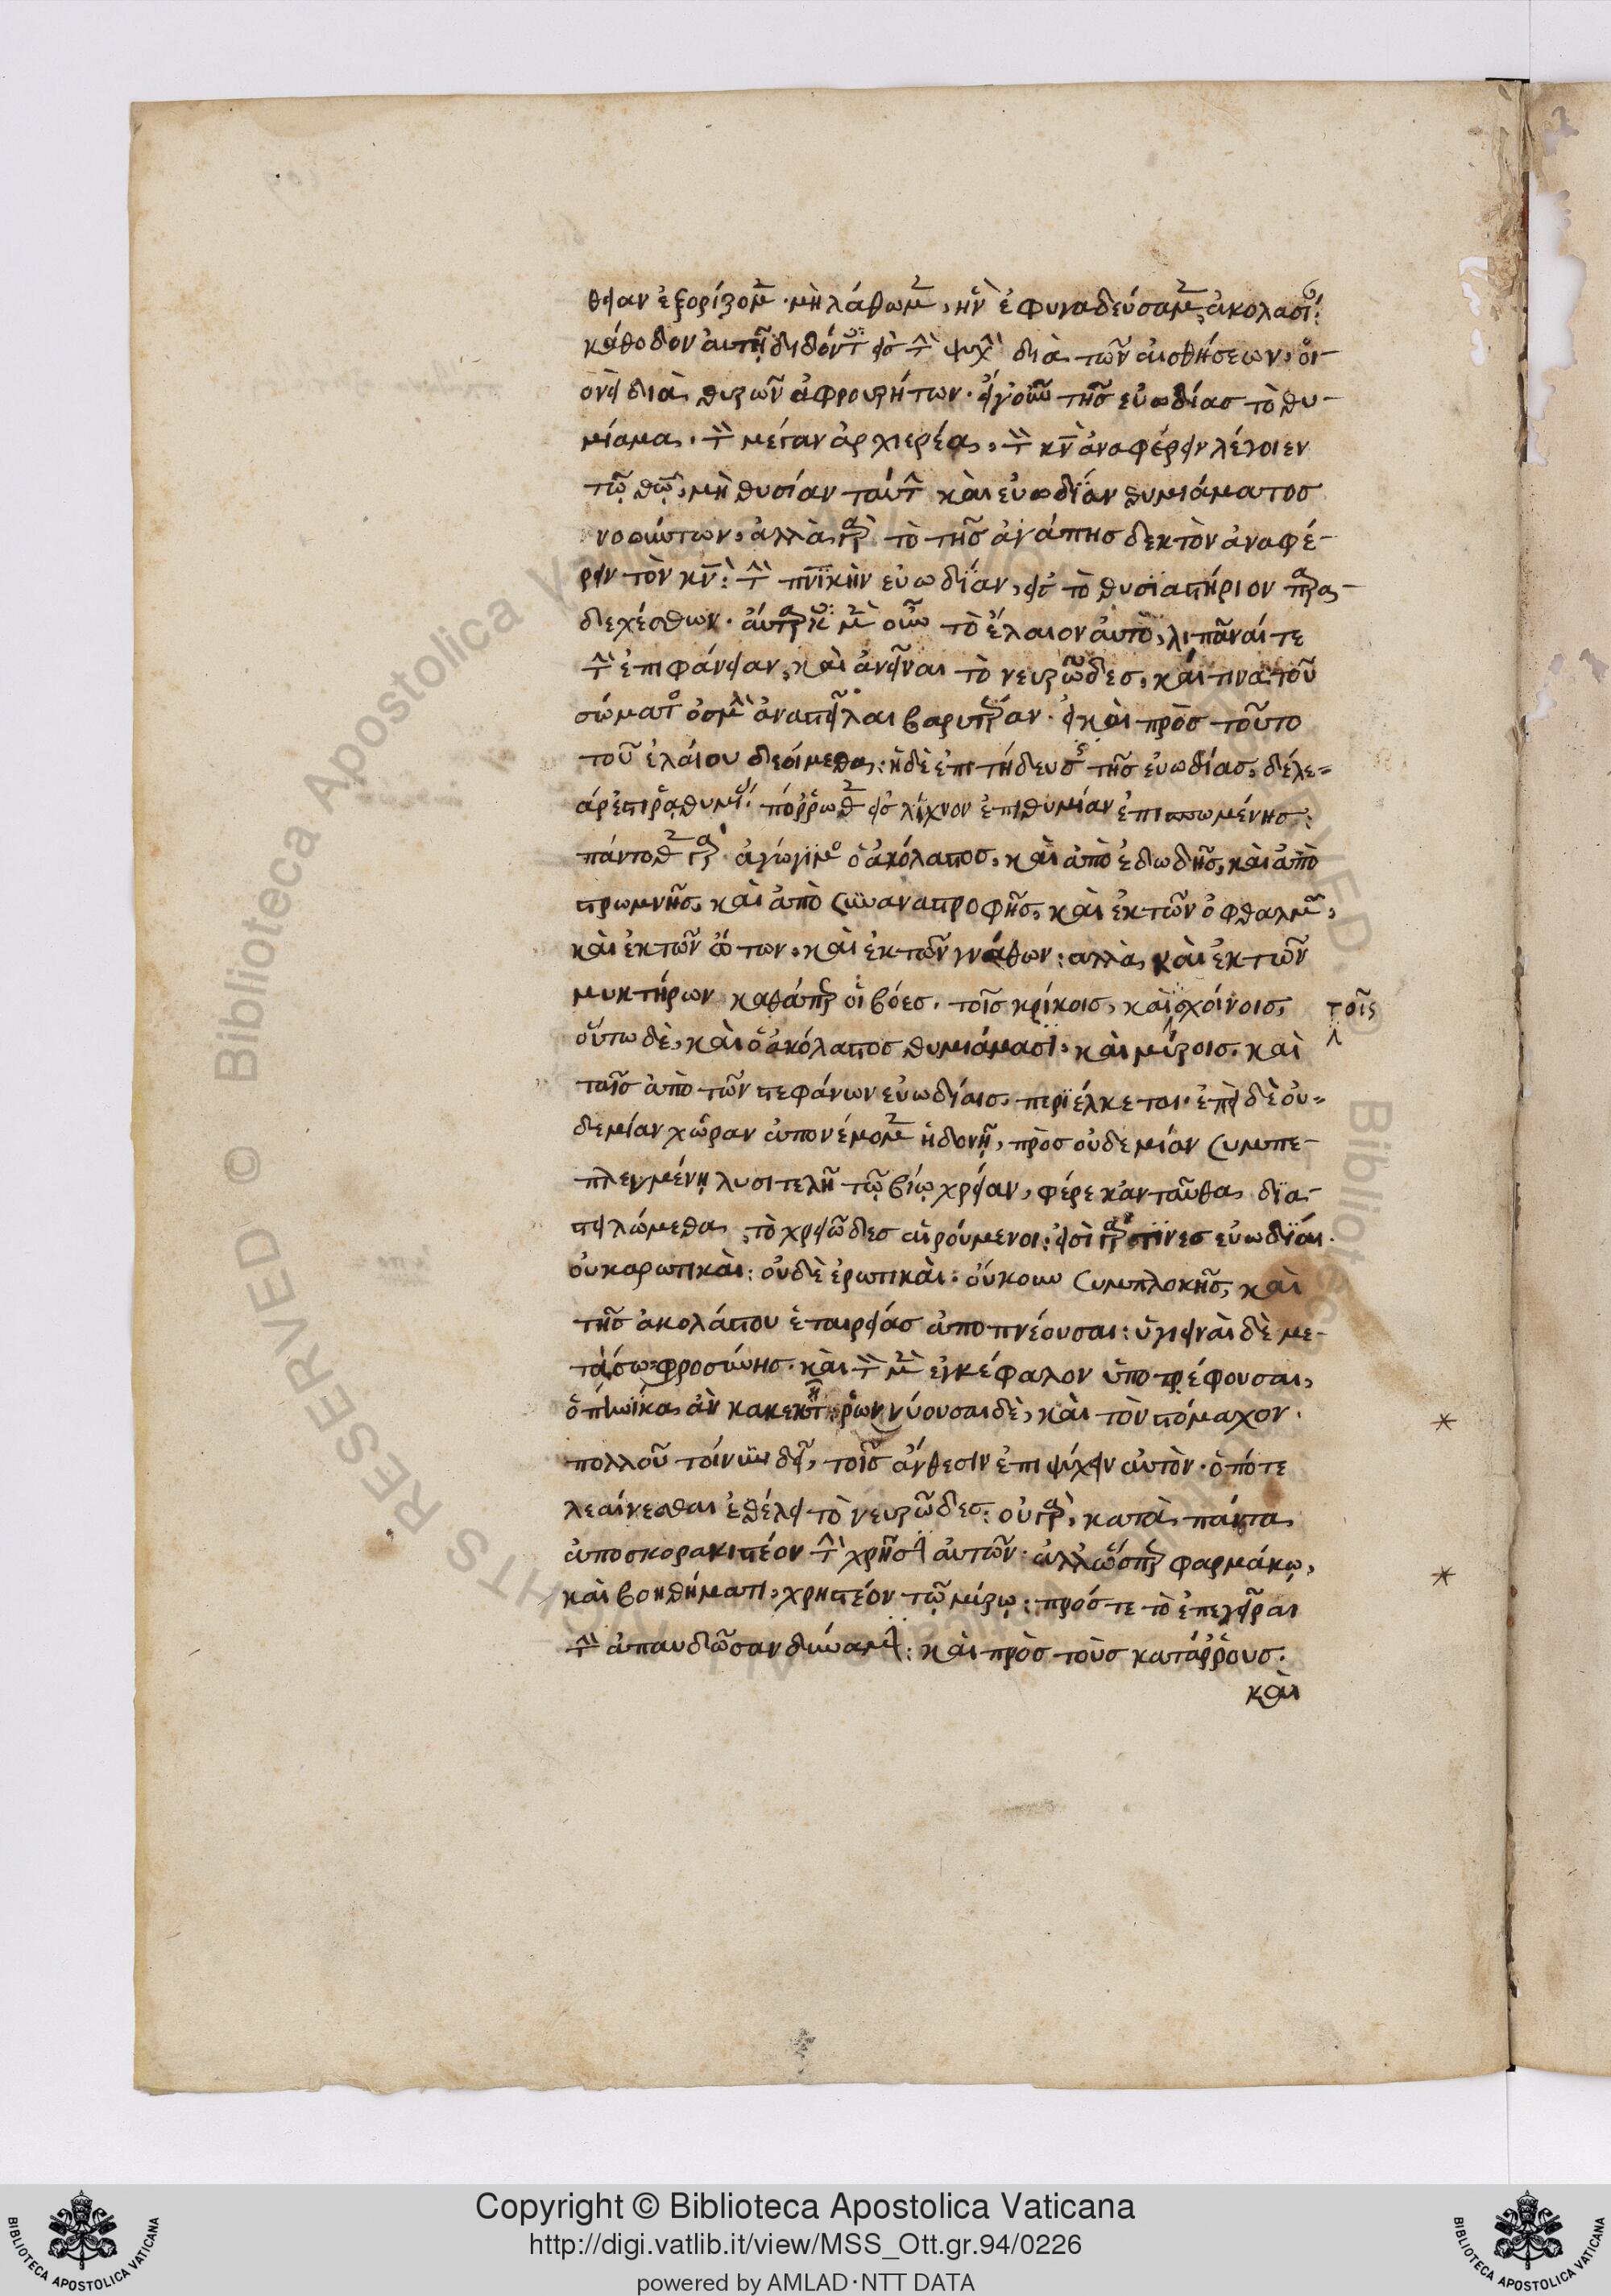 θειαν ἐξορίζομεν. μὴ λάθωμεν, ἣν ἐφυγαδεύσαμεν, ἀκολασίαν:
κάθοδον αὐτῇ διδόντες εἰς τὴν ψυχὴν διὰ τῶν αἰσθήσεων, οἱ-
ονεὶ διὰ θυρῶν ἀφρουρήτων. εἰ γοῦν τῆς εὐωδίας τὸ θυ-
μίαμα. τὸν μέγαν ἀρχιερέα, τὸν κν̄ ἀναφέρειν λέγοιεν
τῷ θῷ, μὴ θυσίαν ταύτην καὶ εὐωδίαν θυμιάματος
νοούντων, ἀλλὰ γὰρ τὸ τῆς ἀγάπης δεκτὸν ἀναφέ-
ρειν τὸν κν̄: τὴν πν̄ικὴν εὐωδίαν, εἰς τὸ θυσιαστήριον παρα-
δεχέσθων. αὔταρκες μὲν οὖν τὸ ἔλαιον αὐτὸ, λιπᾶναί τε
τὴν ἐπιφάνειαν, καὶ ἀνεῖναι τὸ νευρῶδες, καί τινα τοῦ
σώματος ὀσμὴν ἀναστεῖλαι βαρυτέραν. εἰ καὶ πρὸς τοῦτο
τοῦ ἐλαίου δεοίμεθα: ἡ δὲ ἐπιτήδευσις τῆς εὐωδίας, δέλε-
άρ ἐστι ῥᾳθυμίας πόρρωθεν εἰς λίχνον ἐπιθυμίαν ἐπισπωμένης:
πάντοθεν γὰρ ἀγώγιμος ὁ ἀκόλαστος, καὶ ἀπὸ ἐδωδῆς, καὶ ἀπὸ
στρωμνῆς, καὶ ἀπὸ συναναστροφῆς, καὶ ἐκ τῶν ὀφθαλμῶν,
καὶ ἐκ τῶν ὤτων, καὶ ἐκ τῶν γνάθων: ἀλλὰ καὶ ἐκ τῶν
μυκτήρων καθάπερ οἱ βόες. τοῖς κρίκοις, καὶ σχοίνοις,
τοῖς
οὕτω δὲ, καὶ ὁ ἀκόλαστος θυμιάμασι. καὶ μύροις. καὶ
ταῖς ἀπὸ τῶν στεφάνων εὐωδίαις, περιέλκεται. ἐπεὶ δὲ οὐ-
δεμίαν χώραν ἀπονέμομεν ἡδονῇ, πρὸς οὐδεμίαν συμπε-
πλεγμένῃ λυσιτελῆ τῷ βίῳ χρείαν, φέρε κἀνταῦθα δια-
στειλώμεθα, τὸ χρειῶδες αἱρούμενοι: εἰσὶ γάρ τινες εὐωδίαι.
οὐ καρωτικαὶ: οὐδὲ ἐρωτικαὶ: οὔκουν συμπλοκῆς, καὶ
τῆς ἀκολάστου ἑταιρείας ἀποπνέουσαι: ὑγιειναὶ δὲ με-
τὰ σωφροσύνης. καὶ τὸν μὲν ἐγκέφαλον ὑποτρέφουσαι,
ὁπηνίκα ἂν κακεκτῇ ῥωννύουσαι δὲ, καὶ τὸν στόμαχον.
πολλοῦ τοίνυν δεῖ, τοῖς ἄνθεσιν ἐπιψύχειν αὐτὸν. ὁπότε
λεαίνεσθαι ἐθέλει τὸ νευρῶδες: οὐ γὰρ, κατὰ πάντα
ἀποσκορακιστέον τὴν χρῆσιν αὐτῶν. ἀλλ' ὥσπερ φαρμάκῳ,
καὶ βοηθήματι, χρηστέον τῷ μύρῳ: πρός τε τὸ ἐπεγεῖραι
τὴν ἀπαυδῶσαν δύναμιν: καὶ πρὸς τοὺς κατάρρους.
καὶ
Copyright © Biblioteca Apostolica Vaticana
http://digi.vatlib.it/view/MSS_Ott.gr.94/0226
powered by AMLAD·NTT DATA
BIBLIOTECA APOSTOLICA VATICANA
BIBLIOTECA APOSTOLICA VATICANA